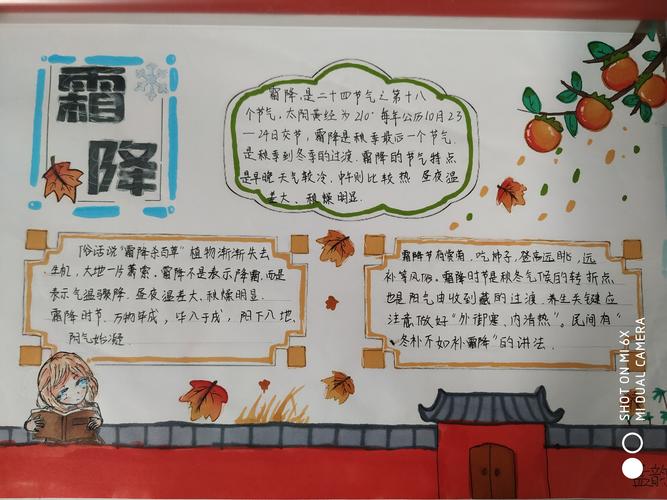 霜
降
霜降,是二十四节气之第十八
个节气,太阳黄经为210°每年公历10月23
—24日交节,霜降是秋季最后一个节气,
是秋季到冬季的过渡.霜降的节气特点
是早晚天气较冷,中午则比较热 昼夜温
差大、秋燥明显.
俗话说"霜降杀百草"植物渐渐失去
生机,大地一片萧索.霜降不是表示降霜,而是
表示气温骤降.昼夜温差大.秋燥明显.
霜降时节.万物毕成,毕入于戌,阳下入地,
阳气始凝
霜降节有赏菊,吃柿子,登高远眺,
补等风俗.霜降时节是秋冬气候的转折点
也是阳气由收到藏的过渡.养生关键应
注意做好"外御寒、内清热"。民间有"
冬补不如补霜降"的讲法.
SHOT ON MI 6X
MI DUAL CAMERA